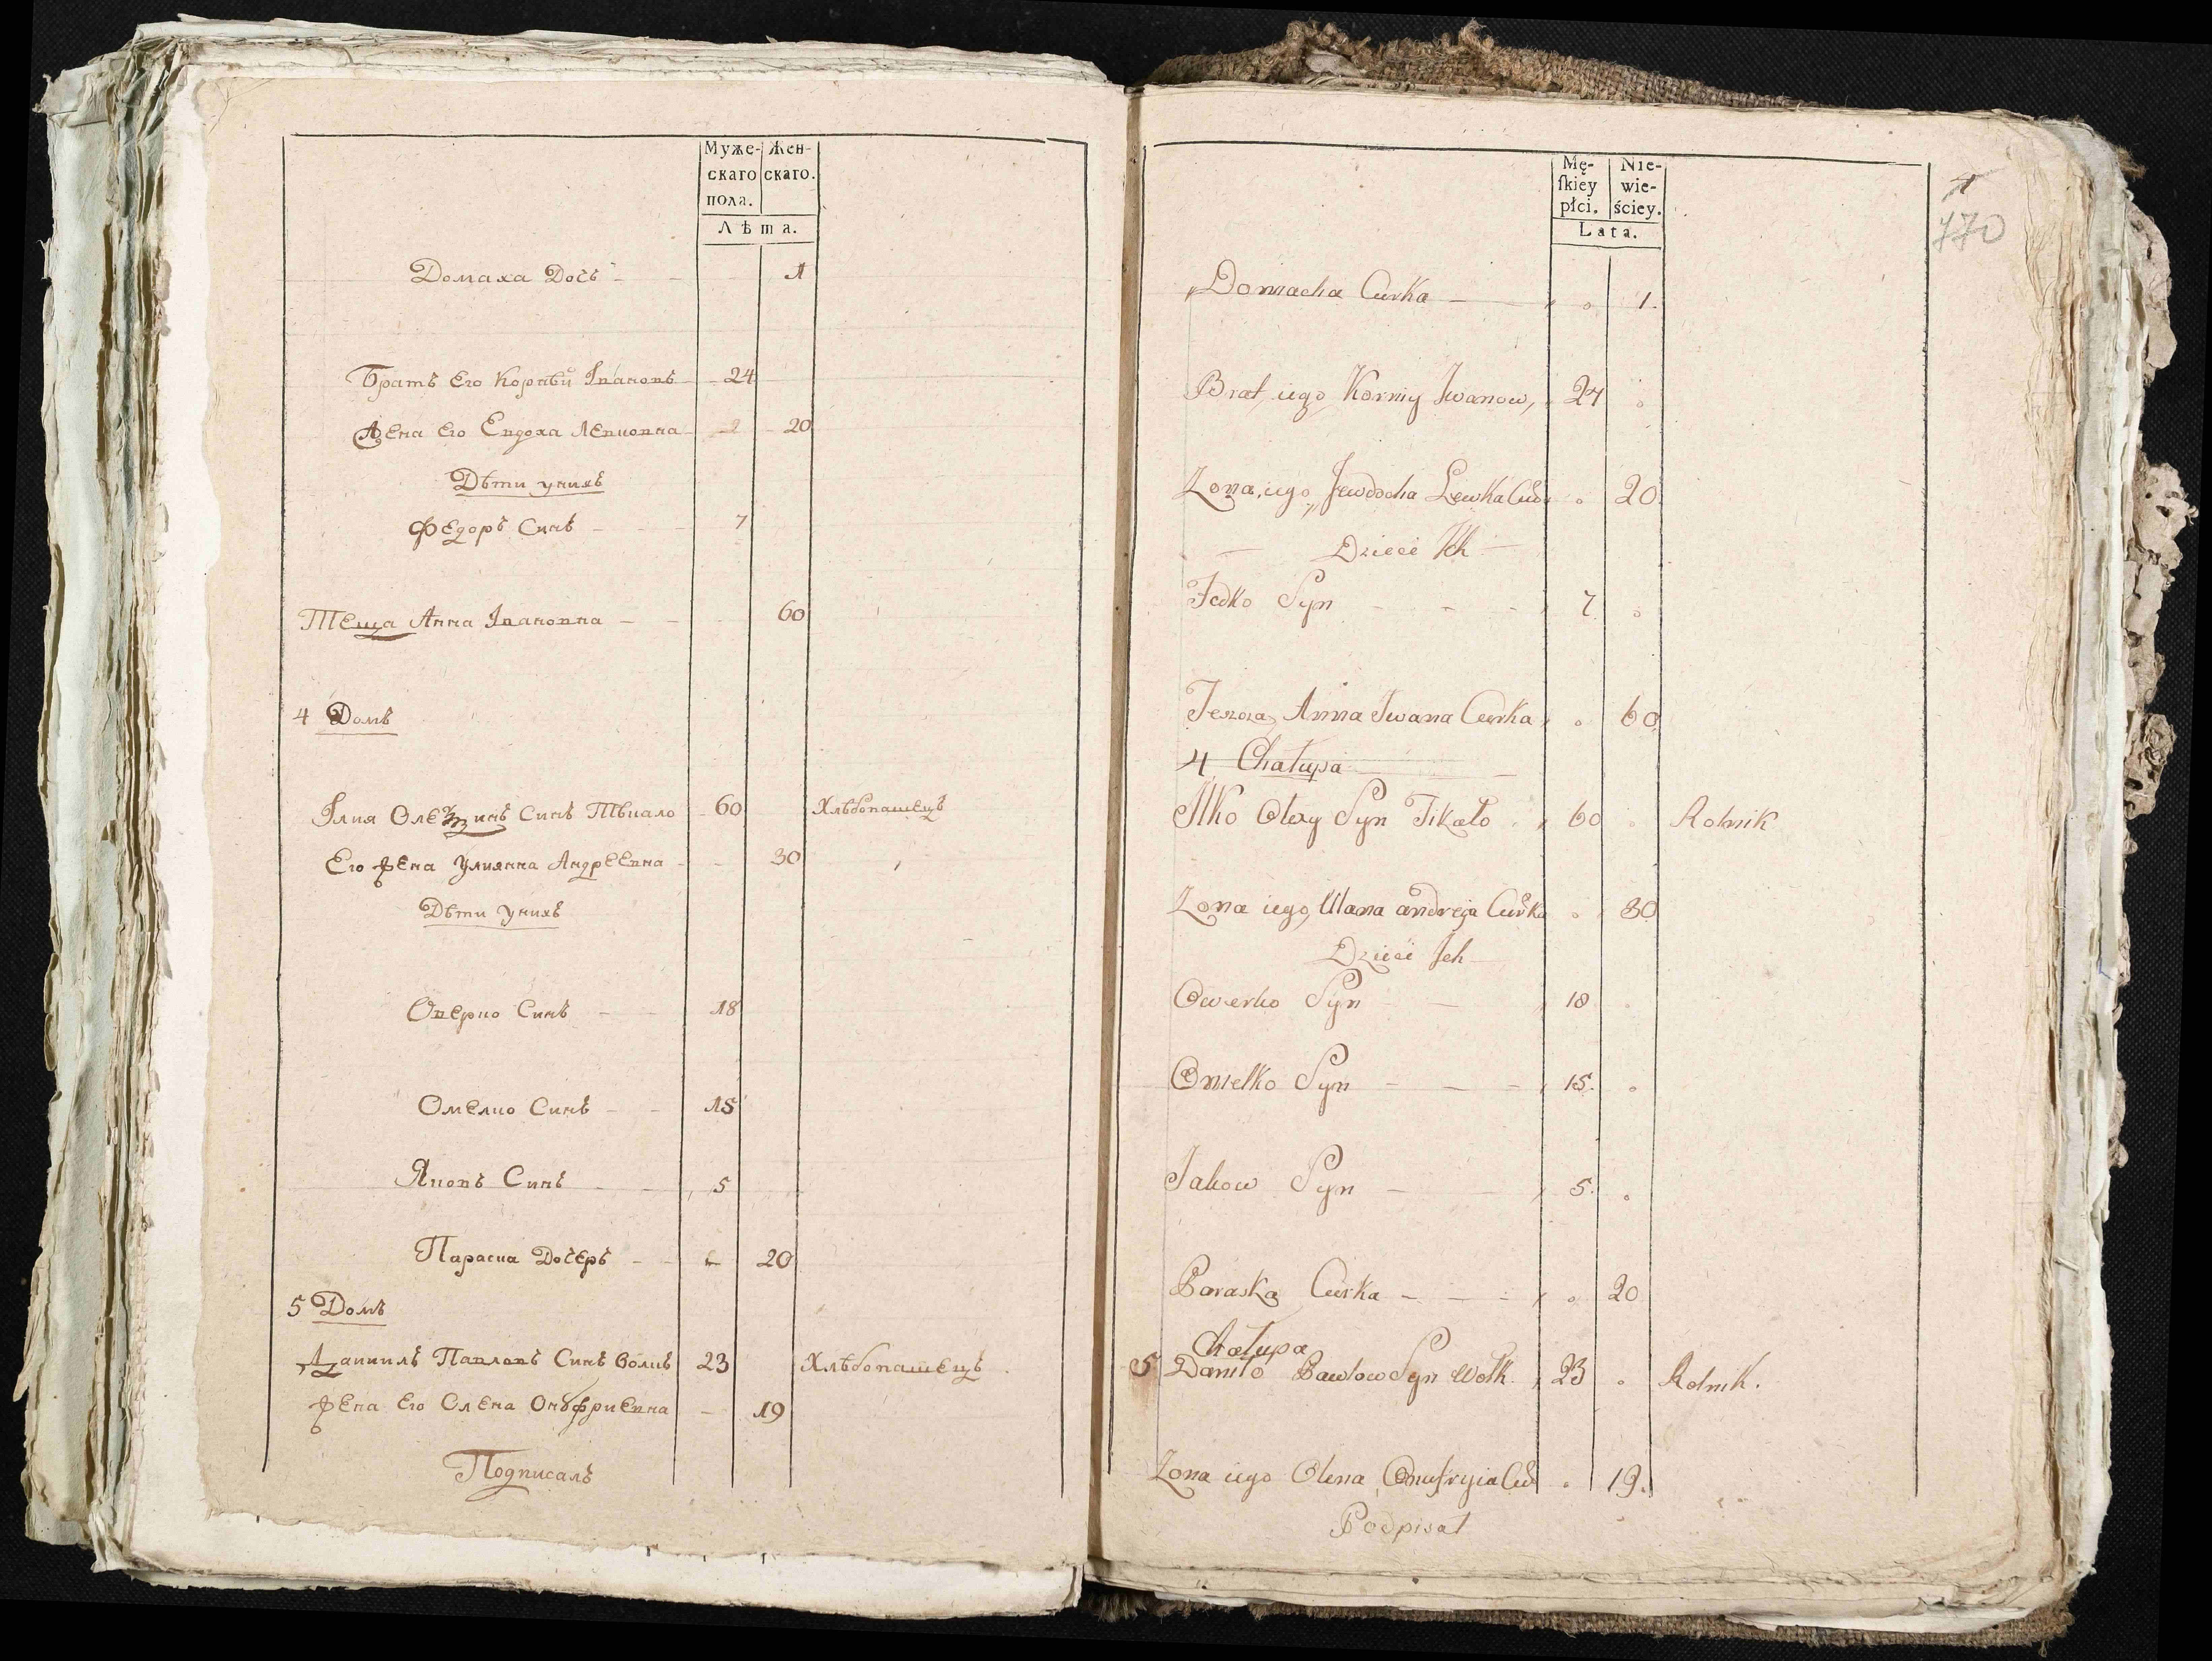 Муже- Жен-
скаго скаго.
пола.
Лѣта.
Домаха Дочъ - - 1
Братъ Его Корнѣй Івановъ - 24
Жена Его Евдоха Левковна - 20
Дѣти унихъ
Федоръ Синъ - - 7
Теща Анна Івановна - - 60
4 Домъ
Ілия Олек Синъ Тѣкало 60 Хлѣбопашецъ
Его жена Улиянна Андреевна - - 30
Дѣти унихъ
Оверко Синъ - - 18
Омелко Синъ - - 15
Яковъ Синъ - - 5
Параска Дочеръ - - 20
5 Домъ
Даниилъ Павловъ Синъ Волкъ 23 Хлѣбопашецъ
жена Его Олена Онуфриевна - 19
Подписалъ
Mę- Nie-
skiey wie-
płci. ściey.
Lata.
4
770
Domacha Curka - " 1.
Brat iego Korniy Iwanow, 24
Zona iego, Jewdocha Lewka Cór 20.
Dzieci Ich
Fedko Syn - - - 7
Teszcza, Anna Iwana Curka 60
4 Chałupa
Ilko Olexy Syn Tikało 60 Rolnik
Zona iego, Ulana andreja Curka 30
Dzieci Ich
Owerko Syn - 18
Omelko Syn - - - 15.
Jakow Syn - - 5.
Paraska Curka - - - 20
Chałupa
5 Daniło Pawłow Syn Wołk. 23 Rolnik.
Zona iego Olena Onufryia Cór 19.
Podpisał